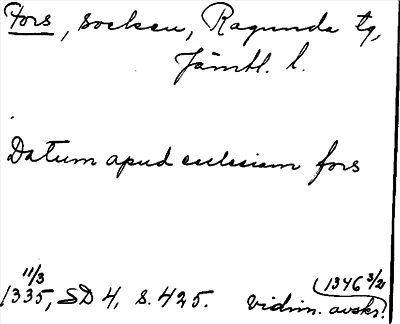 Fors, socken, Ragunda tg,
Jämtl. l.
Datum apud ecclesiam fors
11/3 1346 3/2
1335, SD 4, s. 425. Vidim. avskr.